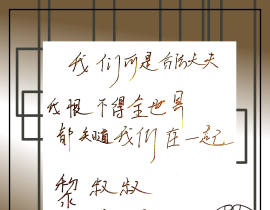 我们可是合法夫夫
我恨不得全世界
都知道我们在一起
黎叔叔